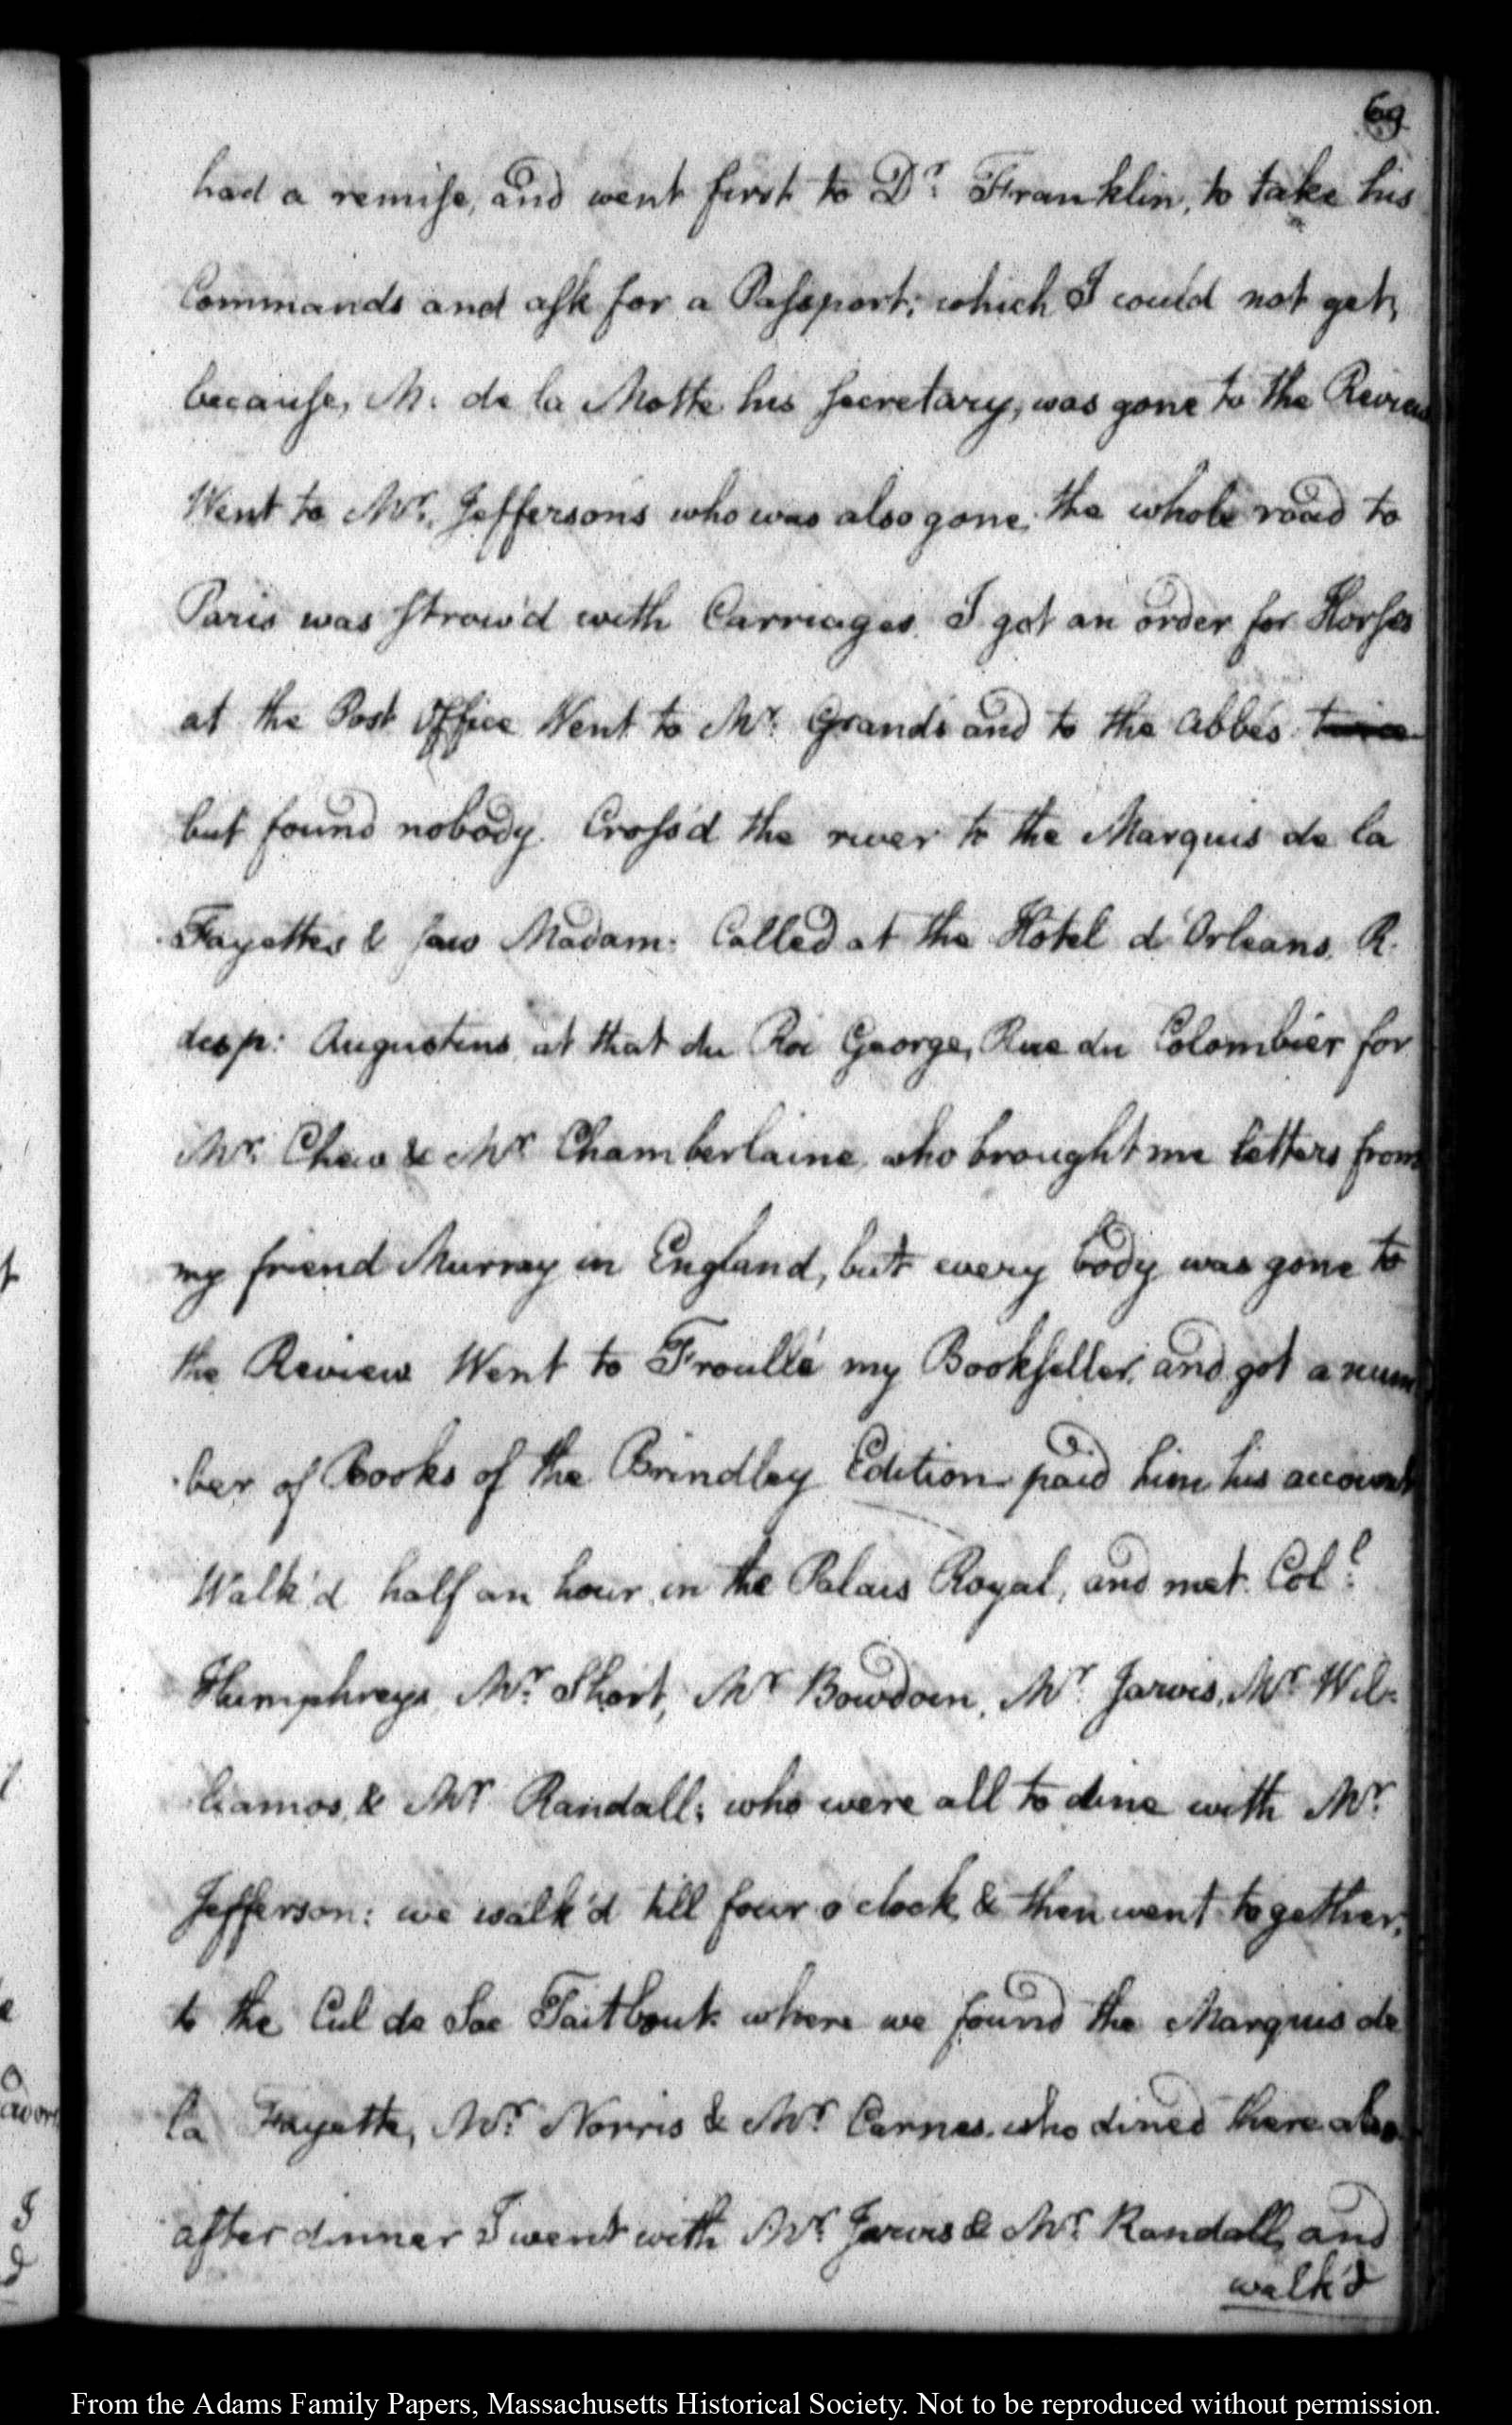 69
had a remise, and went first to Dr. Franklin, to take his
Commands and ask for a Passport; which I could not get,
because, M. de la Motte his secretary, was gone to the Review
Went to Mr. Jeffersons who was also gone, the whole road to
Paris was strow'd with Carriages. I got an order for Horses
at the Post office Went to Mr. Grands and to the Abbés twice
but found nobody. Cross'd the river to the Marquis de la
Fayettes & saw Madam. Called at the Hotel d'Orleans. R.
des p: Augustins, at that du Roi George, Rue du Colombier for
Mr. Chew & Mr. Chamberlaine, who brought me letters from
my friend Murray in England, but every body was gone to
the Review Went to Froullé my Bookseller, and got a num
ber of Books of the Brindley Edition paid him his account
Walk'd half an hour, in the Palais Royal, and met Coll.
Humphreys, Mr. Short, Mr. Bowdoin, Mr. Jarvis, Mr. Wil-
liamos, & Mr. Randall; who were all to dine with Mr.
Jefferson: we walk'd till four o clock, & then went together,
to the Cul de Sac Taitbout where we found the Marquis de
la Fayette, Mr. Norris & Mr. Carnes, who dined there also
after dinner I went with Mr. Jarvis & Mr. Randall, and
walk'd
From the Adams Family Papers, Massachusetts Historical Society. Not to be reproduced without permission.